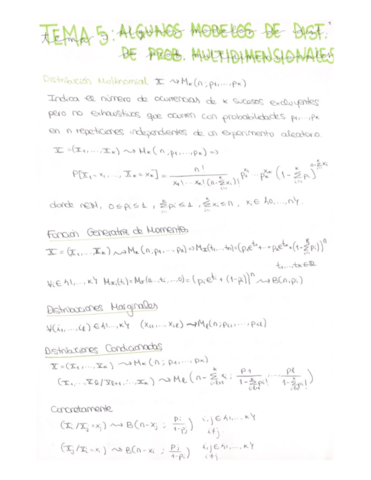 TEMA 5: ALGUNOS MODELOS DE DIST.
DE PROB. MULTIDIMENSIONALES
Distribución Multinomial X ⇝ M_k(n; p₁,...,p_k)
Indica el número de ocurrencias de k sucesos excluyentes
pero no exhaustivos que ocurren con probabilidades p₁,...,p_k
en n repeticiones independientes de un experimento aleatorio.
X = (X₁,...,X_k) ⇝ M_k(n; p₁,...,p_k) ⇒
P[X₁ = x₁, ..., X_k = x_k] = n! / (x₁! ... x_k! (n - Σxᵢ)!) p₁^x₁ ... p_k^x_k (1 - Σpᵢ)^(n - Σxᵢ)
donde n∈ℕ, 0 ≤ pᵢ ≤ 1, Σpᵢ ≤ 1, Σxᵢ ≤ n, xᵢ ∈ {0,...,n}
Función Generatriz de Momentos
X = (X₁,...,X_k) ⇝ M_k(n, p₁,...,p_k) ⇒ M_X(t₁,...,t_k) = (p₁e^t₁ + ... + p_k e^t_k + (1 - Σpᵢ))ⁿ
t₁,...,t_k ∈ ℝ
Distribuciones Marginales
∀(i₁,...,i_ℓ) ∈ {1,...,k} (x_i₁,...,x_iℓ) ⇝ M_ℓ(n; p_i₁,...,p_iℓ)
Distribuciones Condicionadas
X = (X₁,...,X_k) ⇝ M_k(n; p₁,...,p_k)
Concretamente
(Xᵢ/Xⱼ = xⱼ) ⇝ B(n - xⱼ; pᵢ/(1-pⱼ)) i,j ∈ {1,...,k} i≠j
(Xⱼ/Xᵢ = xᵢ) ⇝ B(n - xᵢ; pⱼ/(1-pᵢ)) i,j ∈ {1,...,k} i≠j